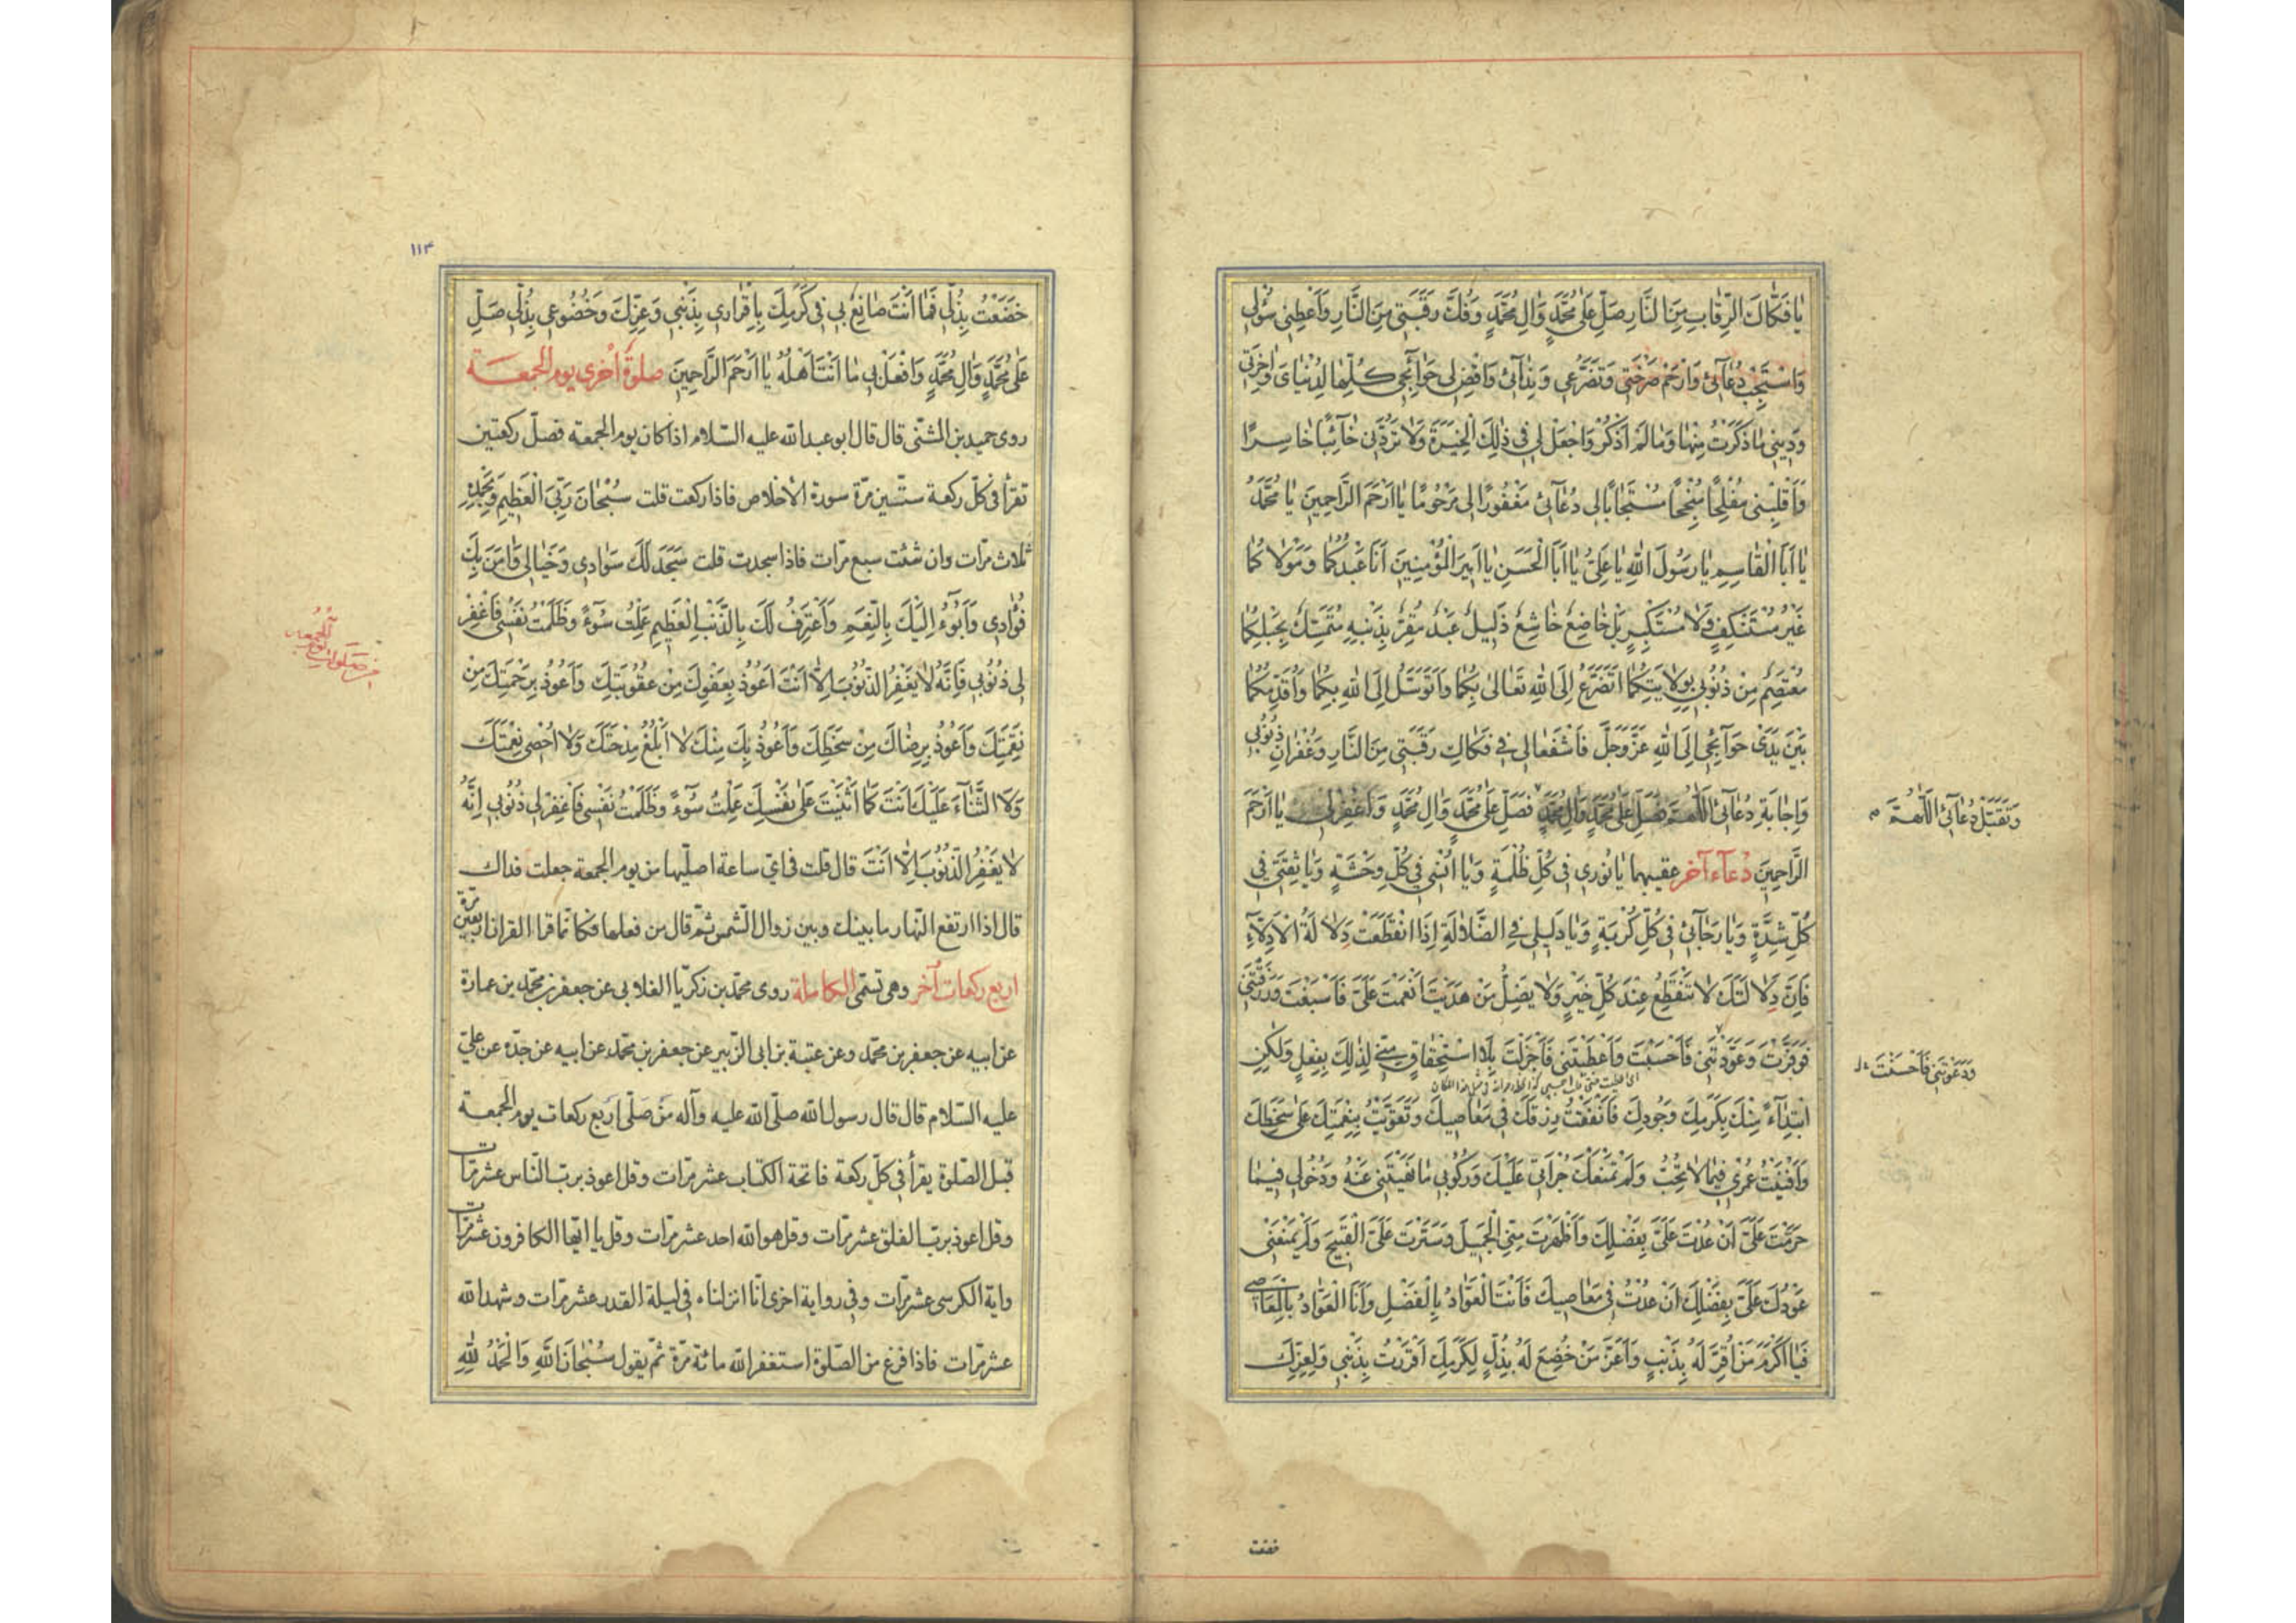 يٰا فَكّٰاكَ الرِّقٰابِ مِنَ النَّارِ صَلِّ عَلىٰ مُحَمَّدٍ وَاٰلِ مُحَمَّدٍ وَفُكَّ رَقَبَتي مِنَ النَّارِ وَاَعْطِني سُؤْلي
وَاسْتَجِبْ دُعٰآئي وَارْحَمْ صَرْخَتي وَتَضَرُّعي وَنِدٰآئي وَاقْضِ لي حَوٰآئِجي كُلَّهٰا لِدُنْيٰايَ وَاٰخِرَتي
وَديني مٰا ذَكَرْتُ مِنْهٰا وَمٰا لَمْ اَذْكُرْ وَاجْعَلْ لي في ذٰلِكَ الْخِيَرَةَ وَلٰا تَرُدَّني خٰآئِبًا خٰاسِرًا
وَاَقْلِبْني مُفْلِحًا مُنْجِحًا مُسْتَجٰابًا لي دُعٰآئي مَغْفُورًا لي مَرْحُومًا يٰا اَرْحَمَ الرَّاحِمينَ يٰا مُحَمَّدُ
يٰا اَبَا الْقٰاسِمِ يٰا رَسُولَ اللهِ يٰا عَلِيُّ يٰا اَبَا الْحَسَنِ يٰا اَميرَ الْمُؤْمِنينَ اَنَا عَبْدُكُمٰا وَمَوْلٰاكُمٰا
غَيْرُ مُسْتَنْكِفٍ وَلٰا مُسْتَكْبِرٍ بَلْ خٰاضِعٌ خٰاشِعٌ ذَليلٌ عَبْدٌ مُقِرٌّ بِذَنْبِهِ مُتَمَسِّكٌ بِحَبْلِكُمٰا
مُعْتَصِمٌ مِنْ ذُنُوبي بِوِلٰايَتِكُمٰا اَتَضَرَّعُ اِلَى اللهِ تَعٰالىٰ بِكُمٰا وَاَتَوَسَّلُ اِلَى اللهِ بِكُمٰا وَاُقَدِّمُكُمٰا
بَيْنَ يَدَيْ حَوٰآئِجي اِلَى اللهِ عَزَّ وَجَلَّ فَاشْفَعٰا لي في فَكٰاكِ رَقَبَتي مِنَ النَّارِ وَغُفْرٰانِ ذُنُوبي
وَاِجٰابَةِ دُعٰآئي اَللّٰهُمَّ فَصَلِّ عَلىٰ مُحَمَّدٍ وَاٰلِ مُحَمَّدٍ فَصَلِّ عَلىٰ مُحَمَّدٍ وَاٰلِ مُحَمَّدٍ وَاغْفِرْ لي يٰا اَرْحَمَ
وَتَقَبَّلْ دُعٰآئي اَللّٰهُمَّ
الرَّاحِمينَ دُعآء آخر عقيبهما يٰا نُوري في كُلِّ ظُلْمَةٍ وَيٰا اُنْسي في كُلِّ وَحْشَةٍ وَيٰا ثِقَتي في
كُلِّ شِدَّةٍ وَيٰا رَجٰآئي في كُلِّ كُرْبَةٍ وَيٰا دَليلي فِي الضَّلٰالَةِ اِذَا انْقَطَعَتْ دِلٰالَةُ الْاَدِلّٰآءِ
فَاِنَّ دِلٰالَتَكَ لٰا تَنْقَطِعُ عِنْدَ كُلِّ خَيْرٍ وَلٰا يَضِلُّ مَنْ هَدَيْتَ اَنْعَمْتَ عَلَيَّ فَاَسْبَغْتَ وَرَزَقْتَني
فَوَفَّرْتَ وَعَوَّدْتَني فَاَحْسَنْتَ وَاَعْطَيْتَني فَاَجْزَلْتَ بِلَا اسْتِحْقٰاقٍ مِنّي لِذٰلِكَ بِفِعْلٍ وَلٰكِنِ
وَدَعَوْتَني فَاَحْسَنْتَ
ابْتِدٰآءً مِنْكَ بِكَرَمِكَ وَجُودِكَ فَاَنْفَقْتُ رِزْقَكَ في مَعٰاصيكَ وَتَقَوَّيْتُ بِنِعْمَتِكَ عَلىٰ سَخَطِكَ
وَاَفْنَيْتُ عُمْري فيمٰا لٰا تُحِبُّ وَلَمْ تَمْنَعْكَ جُرْاَتي عَلَيْكَ وَرُكُوبي مٰا نَهَيْتَني عَنْهُ وَدُخُولي فيمٰا
حَرَّمْتَ عَلَيَّ اَنْ عُدْتَ عَلَيَّ بِفَضْلِكَ وَاَظْهَرْتَ مِنّي الْجَميلَ وَسَتَرْتَ عَلَيَّ الْقَبيحَ وَلَمْ يَمْنَعْني
عَوْدُكَ عَلَيَّ بِفَضْلِكَ اَنْ عُدْتُ في مَعٰاصيكَ فَاَنْتَ الْعَوّٰادُ بِالْفَضْلِ وَاَنَا الْعَوّٰادُ بِالْمَعٰاصي
فَيٰا اَكْرَمَ مَنْ اُقِرَّ لَهُ بِذَنْبٍ وَاَعَزَّ مَنْ خُضِعَ لَهُ بِذُلٍّ لِكَرَمِكَ اَقْرَرْتُ بِذَنْبي وَلِعِزِّكَ
خضعت
١١٤
خَضَعْتُ بِذُلّي فَمٰا اَنْتَ صٰانِعٌ بي في كَرَمِكَ بِاِقْرٰاري بِذَنْبي وَعِزِّكَ وَخُضُوعي بِذُلّي صَلِّ
عَلىٰ مُحَمَّدٍ وَاٰلِ مُحَمَّدٍ وَافْعَلْ بي مٰا اَنْتَ اَهْلُهُ يٰا اَرْحَمَ الرَّاحِمينَ صلوةٌ اُخرى يوم الجمعــة
روى حميد بن المثنّى قال قال ابو عبدالله عليه السّلام اذا كان يوم الجمعة فصلّ ركعتين
تقرأ في كلّ ركعة ستّين مرّة سورة الاخلاص فاذا ركعت قلت سُبْحٰانَ رَبِّيَ الْعَظيمِ وَبِحَمْدِهِ
ثلاث مرّات وان شئت سبع مرّات فاذا سجدت قلت سَجَدَ لَكَ سَوٰادي وَخَيٰالي وَاٰمَنَ بِكَ
فُؤٰادي وَاَبُوٓءُ اِلَيْكَ بِالنِّعَمِ وَاَعْتَرِفُ لَكَ بِالذَّنْبِ الْعَظيمِ عَمِلْتُ سُوٓءًا وَظَلَمْتُ نَفْسي فَاغْفِرْ
لي ذُنُوبي فَاِنَّهُ لٰا يَغْفِرُ الذُّنُوبَ اِلّٰا اَنْتَ اَعُوذُ بِعَفْوِكَ مِنْ عُقُوبَتِكَ وَاَعُوذُ بِرَحْمَتِكَ مِنْ
نَقِمَتِكَ وَاَعُوذُ بِرِضٰاكَ مِنْ سَخَطِكَ وَاَعُوذُ بِكَ مِنْكَ لٰا اَبْلُغُ مِدْحَتَكَ وَلٰا اُحْصي نِعْمَتَكَ
وَلَا الثَّنٰآءَ عَلَيْكَ اَنْتَ كَمٰا اَثْنَيْتَ عَلىٰ نَفْسِكَ عَمِلْتُ سُوٓءًا وَظَلَمْتُ نَفْسي فَاغْفِرْ لي ذُنُوبي اِنَّهُ
لٰا يَغْفِرُ الذُّنُوبَ اِلّٰا اَنْتَ قال قلت في ايّ ساعة اصلّيها من يوم الجمعة جعلت فداك
قال اذا ارتفع النّهار ما بينك وبين زوال الشّمس ثمّ قال من فعلها فكانّما قرا القران اربعين مرّة
اربع ركعات اُخر وهي تسمّى الكاملة روى محمّد بن زكريّا الغلابي عن جعفر بن محمّد بن عمارة
عن ابيه عن جعفر بن محمّد وعن عتبة بن ابي الزّبير عن جعفر بن محمّد عن ابيه عن جدّه عن عليّ
عليه السّلام قال قال رسول الله صلّى الله عليه وآله مَنْ صَلّى اربع ركعات يوم الجمعــة
قبل الصّلوة يقرأ في كلّ ركعة فاتحة الكتاب عشر مرّات وقل اعوذ بربّ النّاس عشر مرّات
وقل اعوذ بربّ الفلق عشر مرّات وقل هو الله احد عشر مرّات وقل يا ايّها الكافرون عشر مرّات
واية الكرسى عشر مرّات وفي رواية اخرى انّا انزلناه في ليلة القدر عشر مرّات وشهد الله
عشر مرّات فاذا فرغ من الصّلوة استغفر الله مائة مرّة ثمّ يقول سُبْحٰانَ اللهِ وَالْحَمْدُ لِلّٰهِ